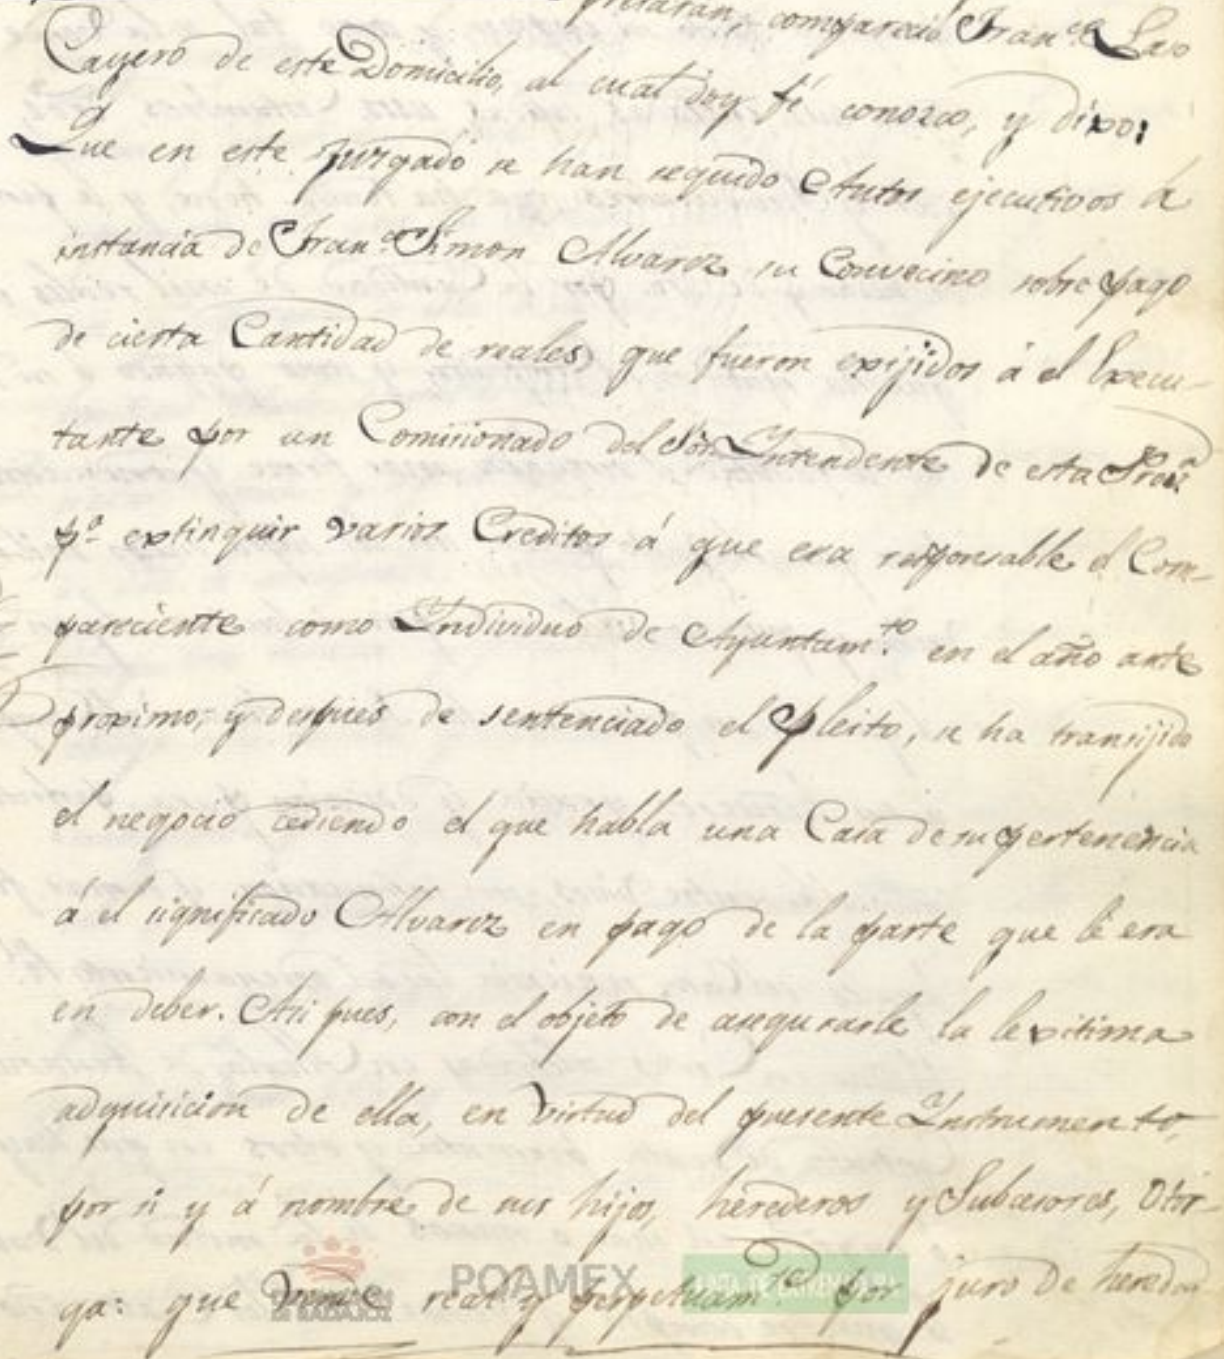 comparecio Fran.co
Cayero de este Domicilio, al cual doy fé conozco, y dixo:
Que en este Juzgado se han seguido Autos ejecutivos á
instancia de Fran.co Simon Alvarez su Convecino sobre pago
de cierta Cantidad de reales que fueron exijidos á el Execu-
tante por un Comisionado del Sôr. Intendente de esta Prov.a
p.a extinguir varios Creditos á que era responsable el Com-
pareciente como Individuo de Ayuntam.to en el año ante
proximo; y despues de sentenciado el Pleito, se ha transijido
el negocio cediendo el que habla una Casa de su pertenencia
á el significado Alvarez en pago de la parte que le era
en deber. Asi pues, con el objeto de asegurarle la lexitima
adquisicion de ella, en virtud del presente Instrumento,
por si y á nombre de sus hijos, herederos y Subcesores, Otor-
ga: que Vende real y perpetuam.te por juro de heredad
POAMEX
JUNTA DE EXTREMADURA